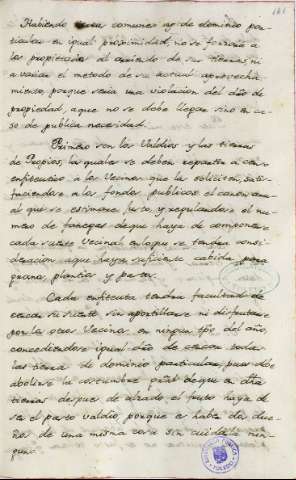 Habiendo tierras comunes ay de dominio par-
ticular en igual proximidad, no se forzará a
los propietarios al arriendo de sus tierras, ni
a variar el metodo de su actual aprovecha-
miento, porque seria una violacion del dro de
propiedad, a que no se debe llegar sino en ca-
so de publica necesidad.
Primero son los Valdios y las tierras
de Propios, las quales se deben repartir a censo
enfiteutico a los Vecinos que la soliciten, satis-
faciendose a los fondos publicos el canon anu-
al que se estimare justo, y regulandose el nu-
mero de fanegas de que haya de componerse
cada suerte Vecinal, en lo que se tendra consi-
deracion a que haya suficiente cabida para
grano, plantio y pasto.
Cada enfiteuta tendra facultad de
cercar su suerte sin aportillarse ni disfrutarse
por los otros Vecinos en ningun tpo del año,
concediendose igual dro de cercar todas
las tierras de dominio particular, pues debe
abolirse la costumbre gral de que en dhas
tierras despues de alzado el fruto haya de
ser el pasto valdio, porque es haber dos due-
ños de una misma cosa sin cuidarla nin-
guno.